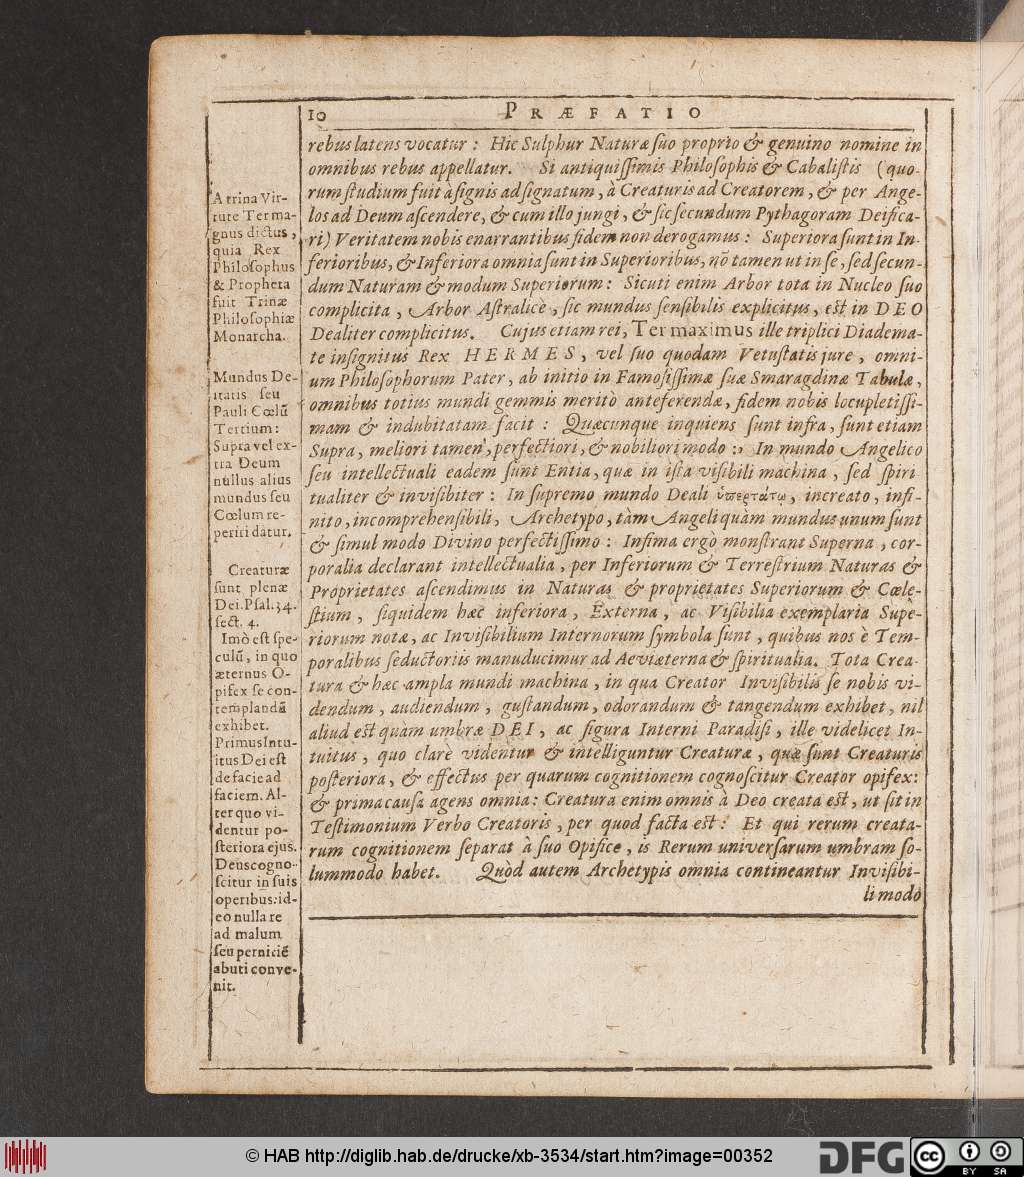 10
PRÆFATIO
rebus latens vocatur : Hic Sulphur Naturæ ſuo proprio & genuino nomine in
omnibus rebus appellatur. Si antiquiſſimis Philoſophis & Cabaliſtis (quo-
rum ſtudium fuit à ſignis ad ſignatum, à Creaturis ad Creatorem, & per Ange-
los ad Deum aſcendere, & cum illo jungi, & ſic ſecundum Pythagoram Deifica-
ri) Veritatem nobis enarrantibus fidem non derogamus : Superiora ſunt in In-
ferioribus, & Inferiora omnia ſunt in Superioribus, nō tamen ut in ſe, ſed ſecun-
dum Naturam & modum Superiorum : Sicuti enim Arbor tota in Nucleo ſuo
complicita, Arbor Aſtralicè, ſic mundus ſenſibilis explicitus, eſt in DEO
Dealiter complicitus. Cujus etiam rei, Ter maximus ille triplici Diadema-
te inſignitus Rex HERMES, vel ſuo quodam Vetuſtatis jure, omni-
um Philoſophorum Pater, ab initio in Famoſiſſimæ ſuæ Smaragdinæ Tabulæ,
omnibus totius mundi gemmis meritò anteferendæ, fidem nobis locupletiſſi-
mam & indubitatam facit : Quæcunque inquiens ſunt infra, ſunt etiam
Supra, meliori tamen, perfectiori, & nobiliori modo :, In mundo Angelico
ſeu intellectuali eadem ſunt Entia, quæ in iſta viſibili machina, ſed ſpiri
tualiter & inviſibiter : In ſupremo mundo Deali ὑπερτάτῳ, increato, infi-
nito, incomprehenſibili, Archetypo, tàm Angeli quàm mundus unum ſunt
& ſimul modo Divino perfectiſſimo : Infima ergò monſtrant Superna, cor-
poralia declarant intellectualia, per Inferiorum & Terreſtrium Naturas &
Proprietates aſcendimus in Naturas & proprietates Superiorum & Cœle-
ſtium, ſiquidem hæc inferiora, Externa, ac Viſibilia exemplaria Supe-
riorum notæ, ac Inviſibilium Internorum ſymbola ſunt, quibus nos è Tem-
poralibus ſeductoriis manuducimur ad Aeviæterna & ſpiritualia. Tota Crea-
tura & hæc ampla mundi machina, in qua Creator Inviſibilis ſe nobis vi-
dendum, audiendum, guſtandum, odorandum & tangendum exhibet, nil
aliud eſt quàm umbra DEI, ac figura Interni Paradiſi, ille videlicet In-
tuitus, quo clarè videntur & intelliguntur Creaturæ, quæ ſunt Creaturis
poſteriora, & effectus per quarum cognitionem cognoſcitur Creator opifex:
& prima cauſa agens omnia: Creatura enim omnis à Deo creata eſt, ut ſit in
Teſtimonium Verbo Creatoris, per quod facta eſt: Et qui rerum creata-
rum cognitionem ſeparat à ſuo Opifice, is Rerum univerſarum umbram ſo-
lummodo habet. Quòd autem Archetypis omnia contineantur Inviſibi-
li modo
A trina Vir-
tute Ter ma-
gnus dictus,
quia Rex
Philoſophus
& Propheta
fuit Trinæ
Philoſophiæ
Monarcha.
Mundus De-
itatis ſeu
Pauli Cœlū
Tertium :
Supra vel ex-
tra Deum
nullus alius
mundus ſeu
Cœlum re-
periri datur.
Creaturæ
ſunt plenæ
Dei. Pſal. 34.
ſect. 4.
Imò eſt ſpe-
culū, in quo
æternus O-
pifex ſe con-
templandū
exhibet.
Primus Intu-
itus Dei eſt
de facie ad
faciem. Al-
ter quo vi-
dentur po-
ſteriora ejus.
Deus cogno-
ſcitur in ſuis
operibus: id-
eo nulla re
ad malum
ſeu perniciē
abuti conve-
nit.
© HAB http://diglib.hab.de/drucke/xb-3534/start.htm?image=00352
DFG
cc
BY SA